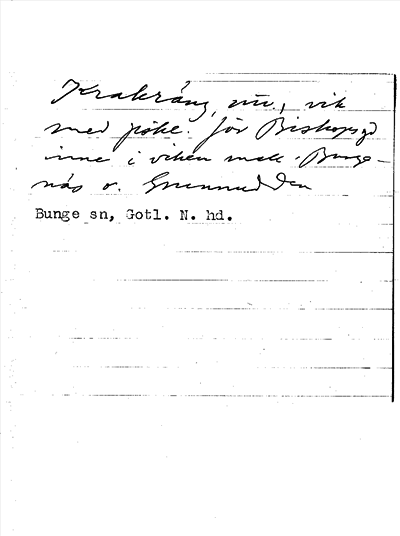 Krakräng, nu, vik
med fiske för Biskops gd
inne i viken mell. Bunge-
näs o. Grunnudden
Bunge sn, Gotl. N. hd.